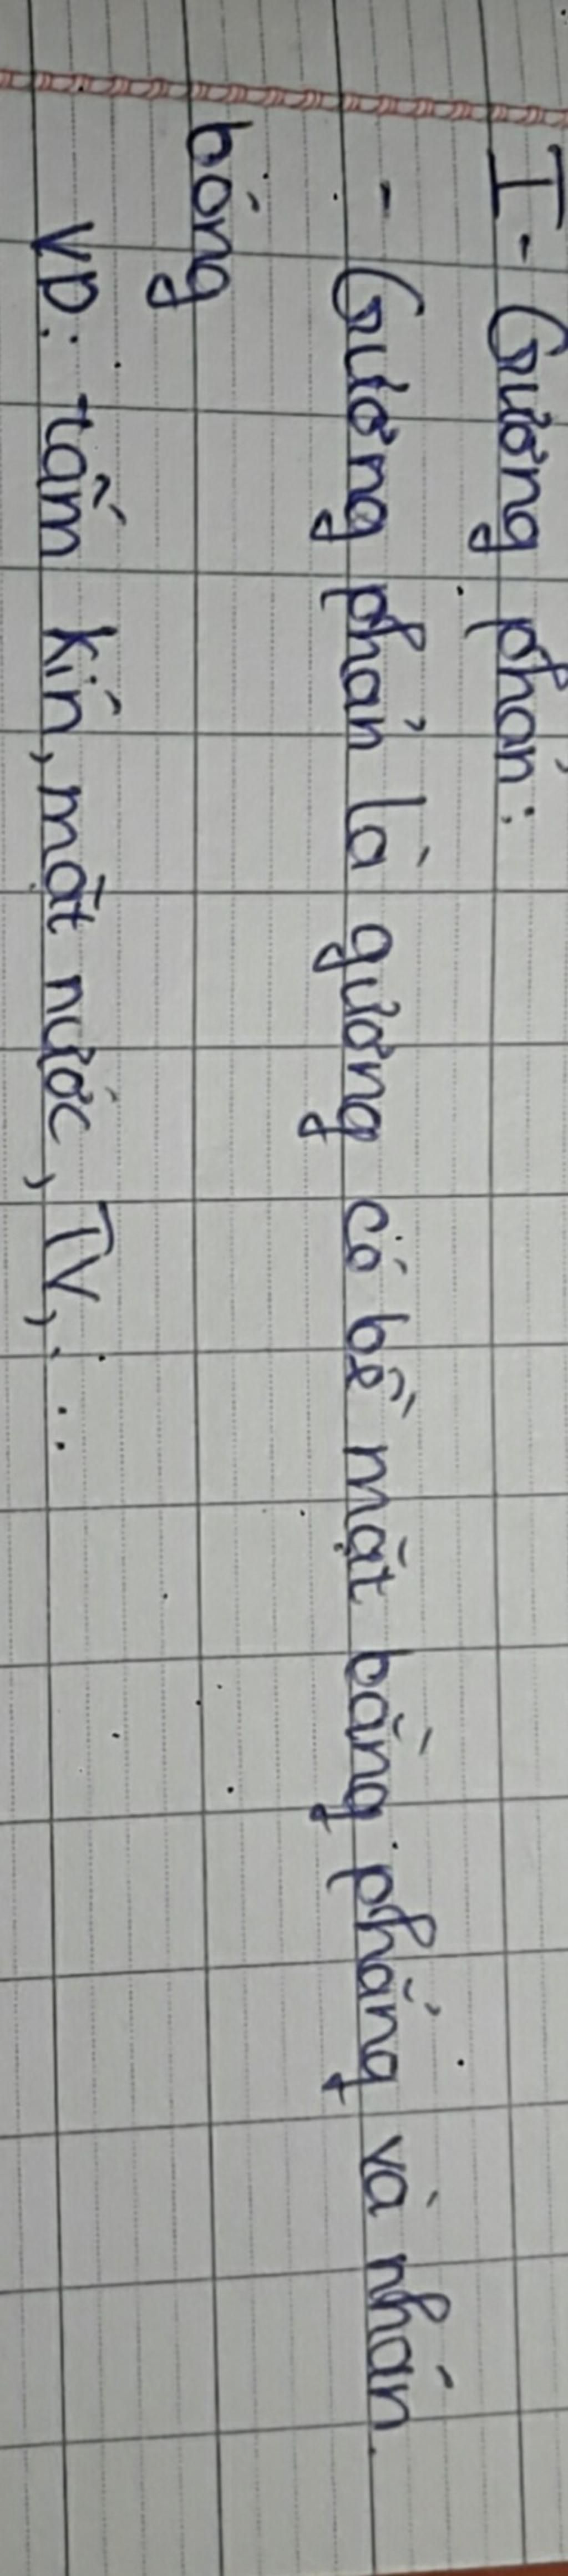 I - Gương phản:
- Gương phản là gương có bề mặt bằng phẳng và nhẵn
bóng
VD: tấm kín, mặt nước, TV, ...